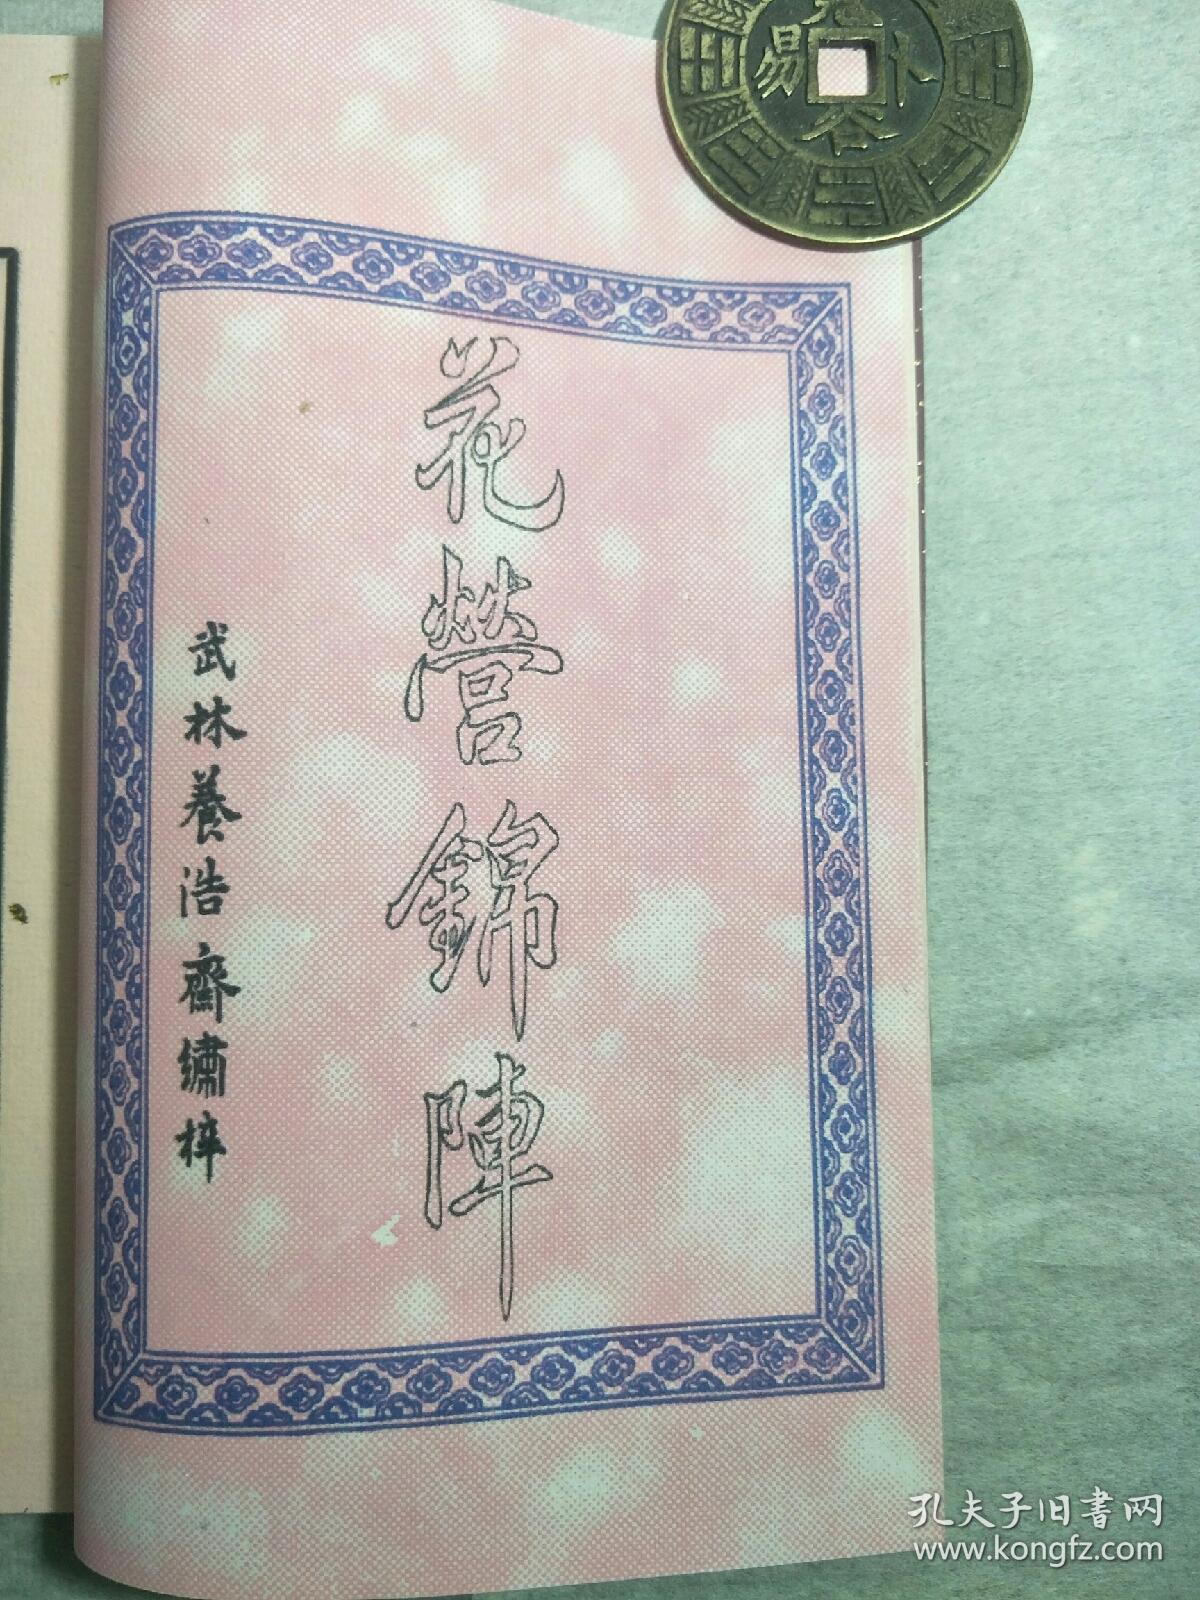 花營錦陣
武林養浩齋繡梓
易
卜
谷
孔夫子旧書网
www.kongfz.com